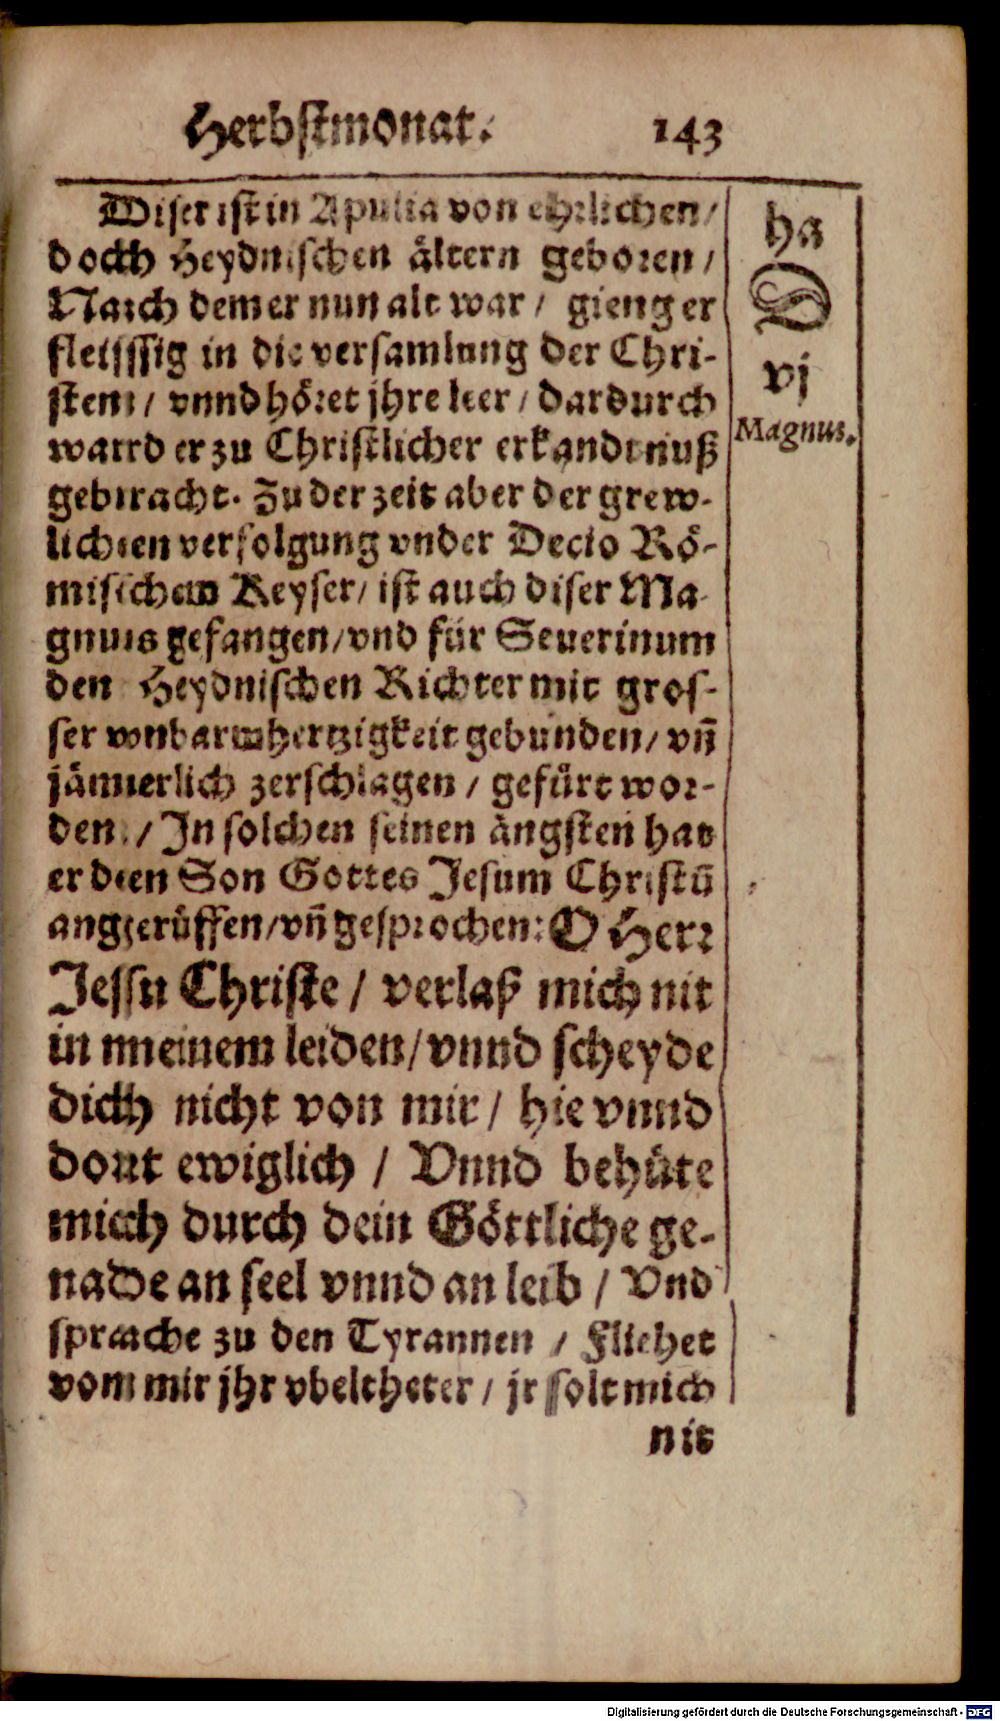 Herbstmonat. 143
Diser ist in Apulia von ehrlichen/
doch Heydnischen ältern geboren/
Nach dem er nun alt war/ gieng er
fleissig in die versamlung der Chri-
sten/ vnnd höret jhre leer/ dardurch
ward er zu Christlicher erkandtnuß
gebracht. Zu der zeit aber der grew-
lichen verfolgung vnder Decio Rö-
mischem Keyser/ ist auch diser Ma-
gnus gefangen/ vnd für Seuerinum
den Heydnischen Richter mit gros-
ser vnbarmhertzigkeit gebunden/ vñ
jämerlich zerschlagen/ gefürt wor-
den/ In solchen seinen ängsten hat
er den Son Gottes Jesum Christū
angerüffen/ vñ gesprochen: O Herr
Jesu Christe/ verlaß mich nit
in meinem leiden/ vnnd scheyde
dich nicht von mir/ hie vnnd
dort ewiglich/ Vnnd behüte
mich durch dein Göttliche ge-
nade an seel vnnd an leib/ Vnd
sprache zu den Tyrannen/ Fliehet
von mir jhr vbeltheter/ jr solt mich
nit
ha
D
vj
Magnus.
Digitalisierung gefördert durch die Deutsche Forschungsgemeinschaft - DFG